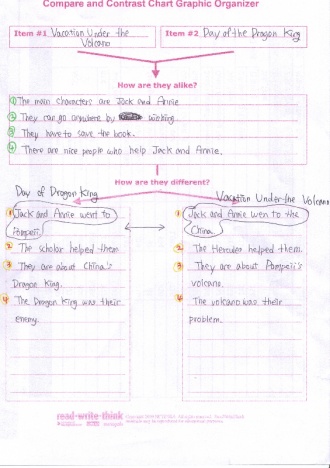 Compare and Contrast Chart Graphic Organizer
Item #1 Vacation Under the
Volcano
Item #2 Day of the Dragon King
How are they alike?
① The main characters are Jack and Annie
② They can go anywhere by wishing.
③ They have to save the book.
④ There are nice people who help Jack and Annie.
How are they different?
Day of Dragon King
① Jack and Annie went to
Pompeii.
② The scholar helped them
③ They are about China's
Dragon King.
④ The Dragon King was their
enemy.
Vacation Under the Volcano
① Jack and Annie wen to the
China.
② The Hercules helped them.
③ They are about Pompeii's
volcano.
④ The volcano was their
problem.
read·write·think